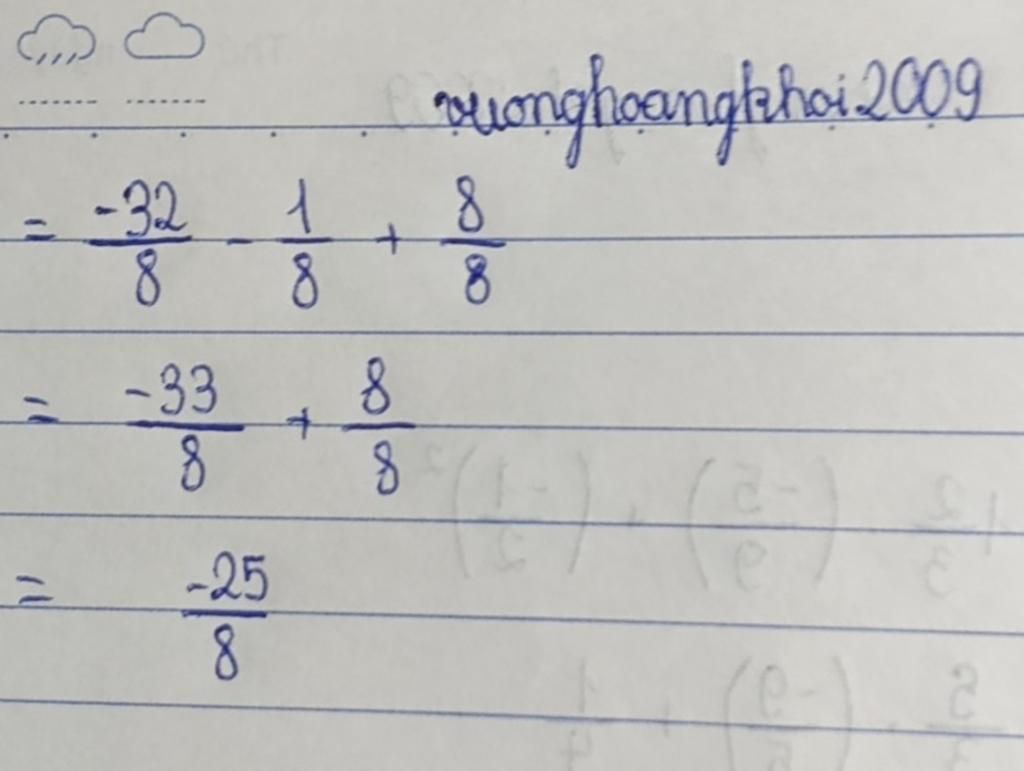 vuonghoangkhoi2009
= -32/8 - 1/8 + 8/8
= -33/8 + 8/8
= -25/8